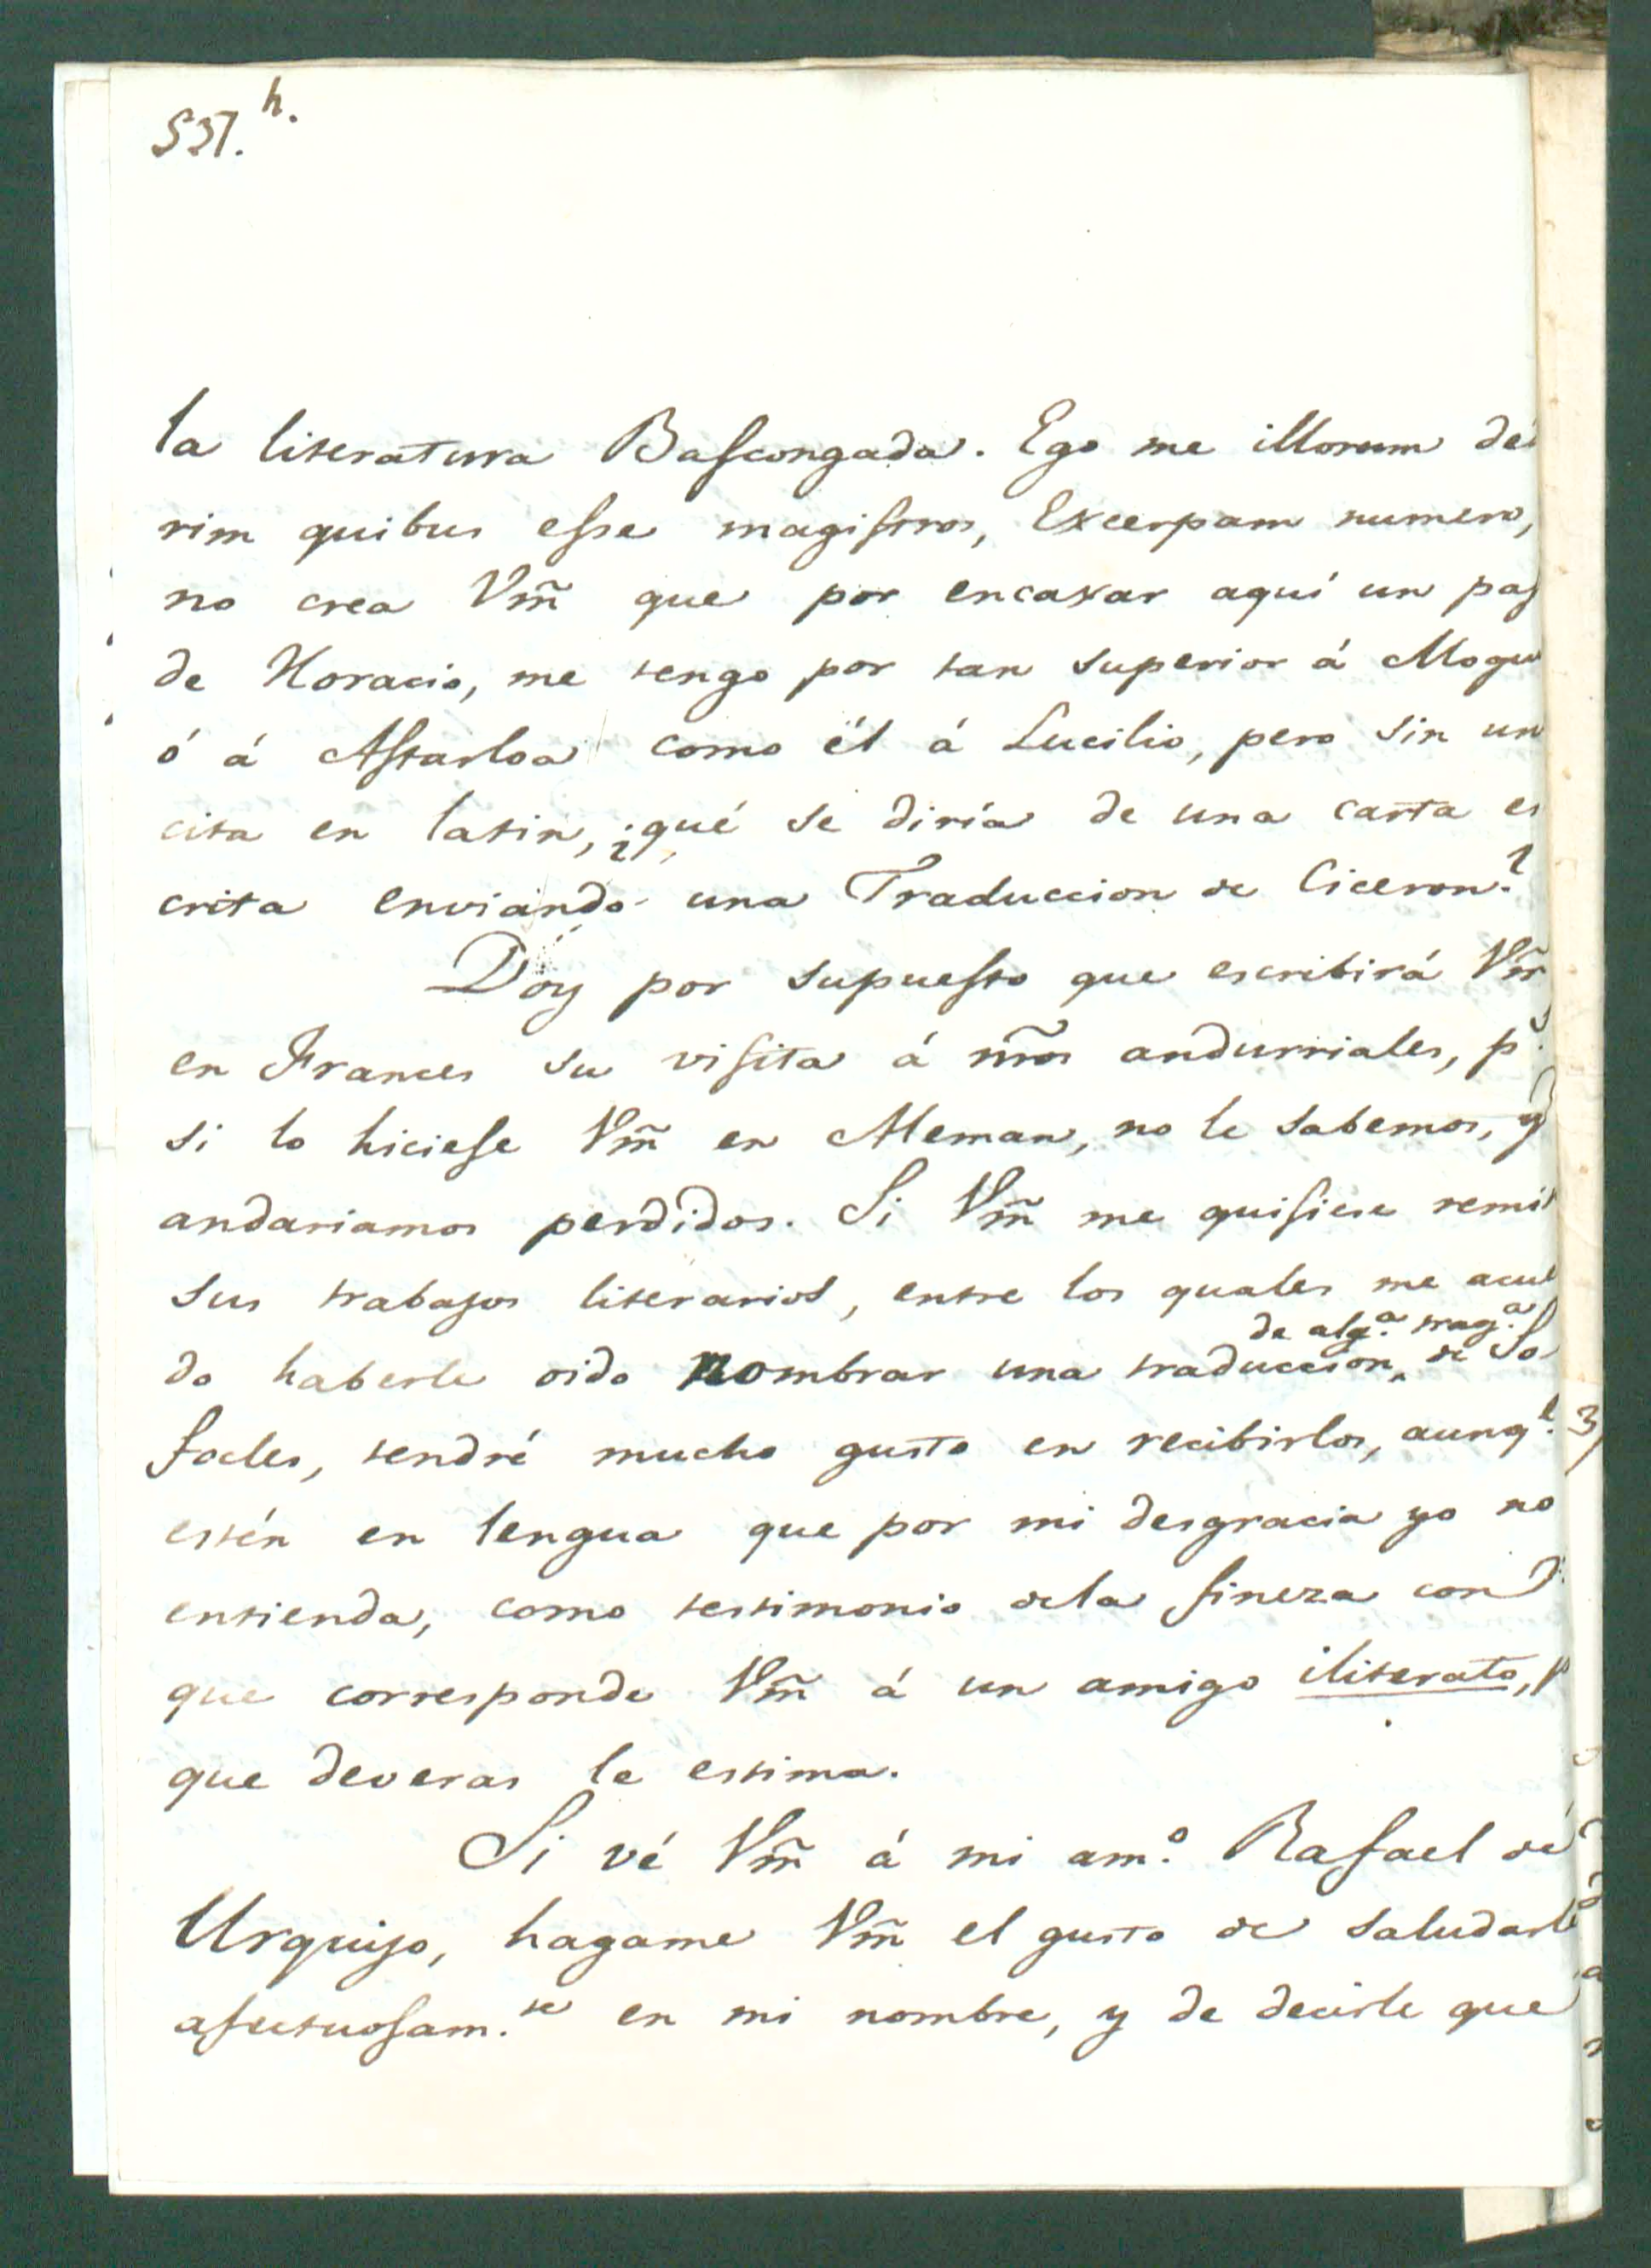 537.h.
la literatura Bascongada. Ego me illorum de
rim quibus esse magistros, Excerpam numero,
no crea Vm̃ que por encaxar aquí un pas
de Horacio, me tengo por tan superior á Mogu
ó á Astarloa como él á Lucilio, pero sin un
cita en latin, ¿qué se diría de una carta es
crita enviando una Traduccion de Ciceron?
Doy por supuesto que escribirá Vm̃
en Frances su visita á ñros andurriales, ps.
si lo hiciese Vm̃ en Aleman, no le sabemos, y
andariamos perdidos. Si Vm̃ me quisiese remit
sus trabajos literarios, entre los quales me acue
de alg.a trag.a
do haberle oido nombrar una traduccion, de So
focles, tendré mucho gusto en recibirlos, aunq.e
estén en lengua que por mi desgracia yo no
entienda, como testimonio dela fineza con
que corresponde Vm̃ á un amigo iliterato, p
que deveras le estima.
Si vé Vm̃ á mi am.o Rafael de
Urquijo, hagame Vm̃ el gusto de saludarle
afectuosam.te en mi nombre, y de decirle que